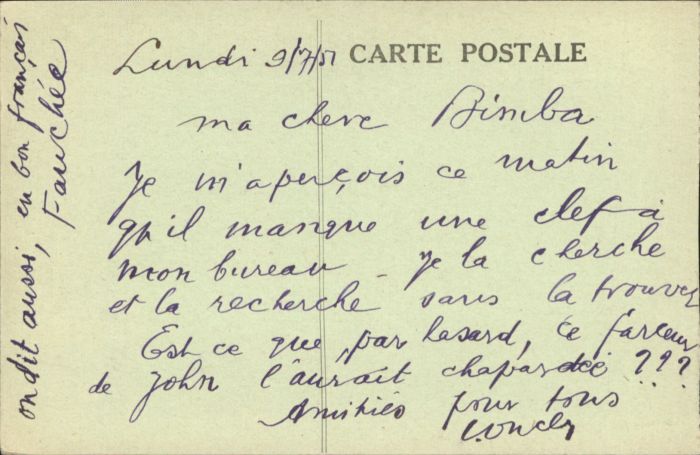 Lundi 9/7/51 CARTE POSTALE
ma chere Bimba
Je m'aperçois ce matin
qu'il manque une clef à
mon bureau - Je la cherche
et la recherche sans la trouver
Est ce que, par hasard, ce farceur
de John l'aurait chapardée ???
Amitiés pour tous
on dit aussi, en bon français
Fauchée